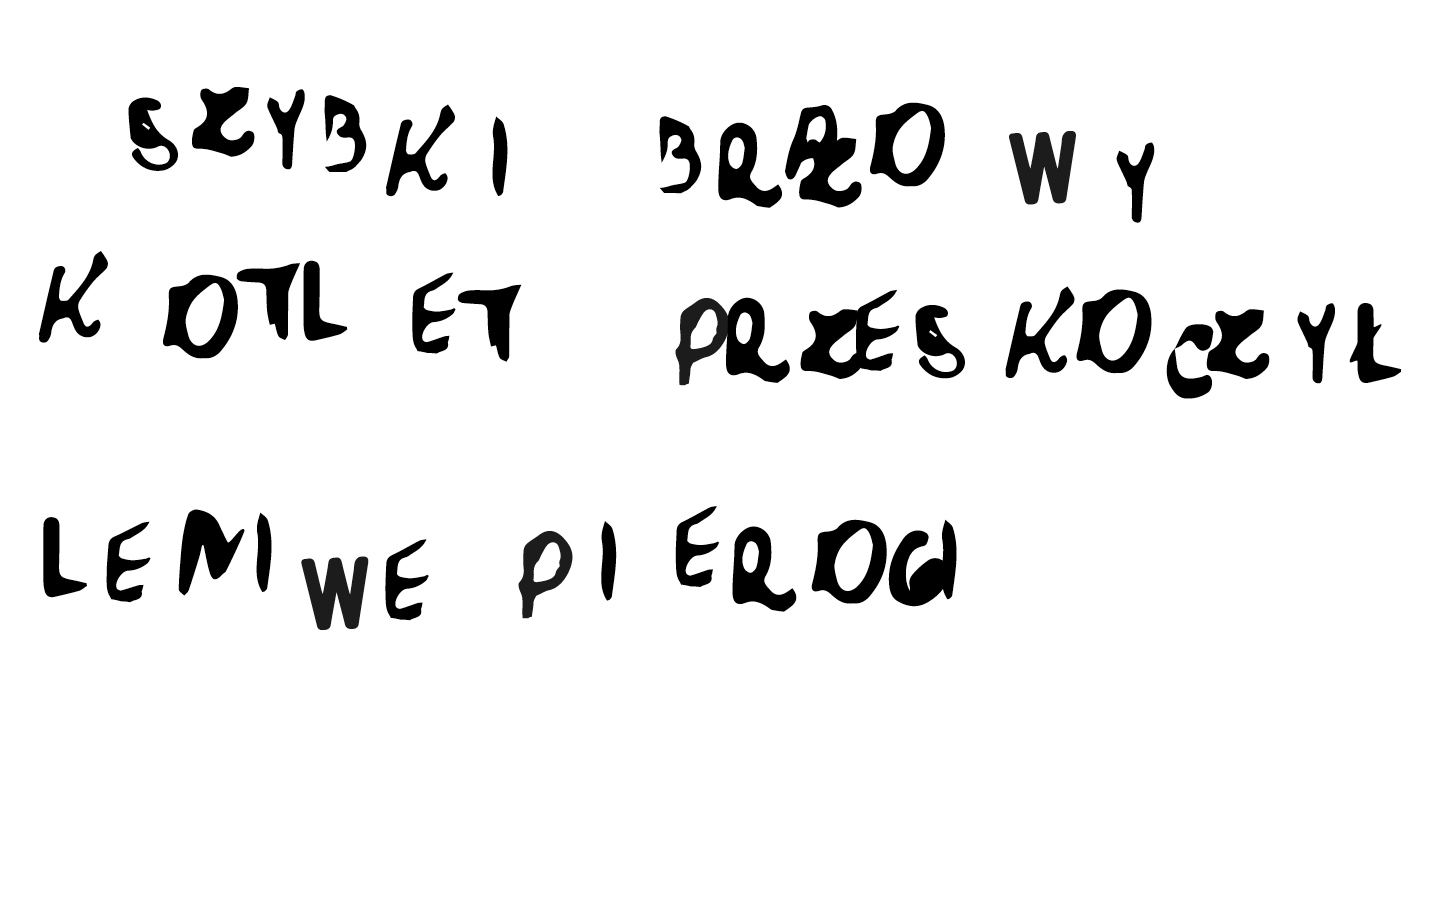 SZYBKI BRĄZOWY
KOTLET PRZESKOCZYŁ
LENIWE PIEROGI